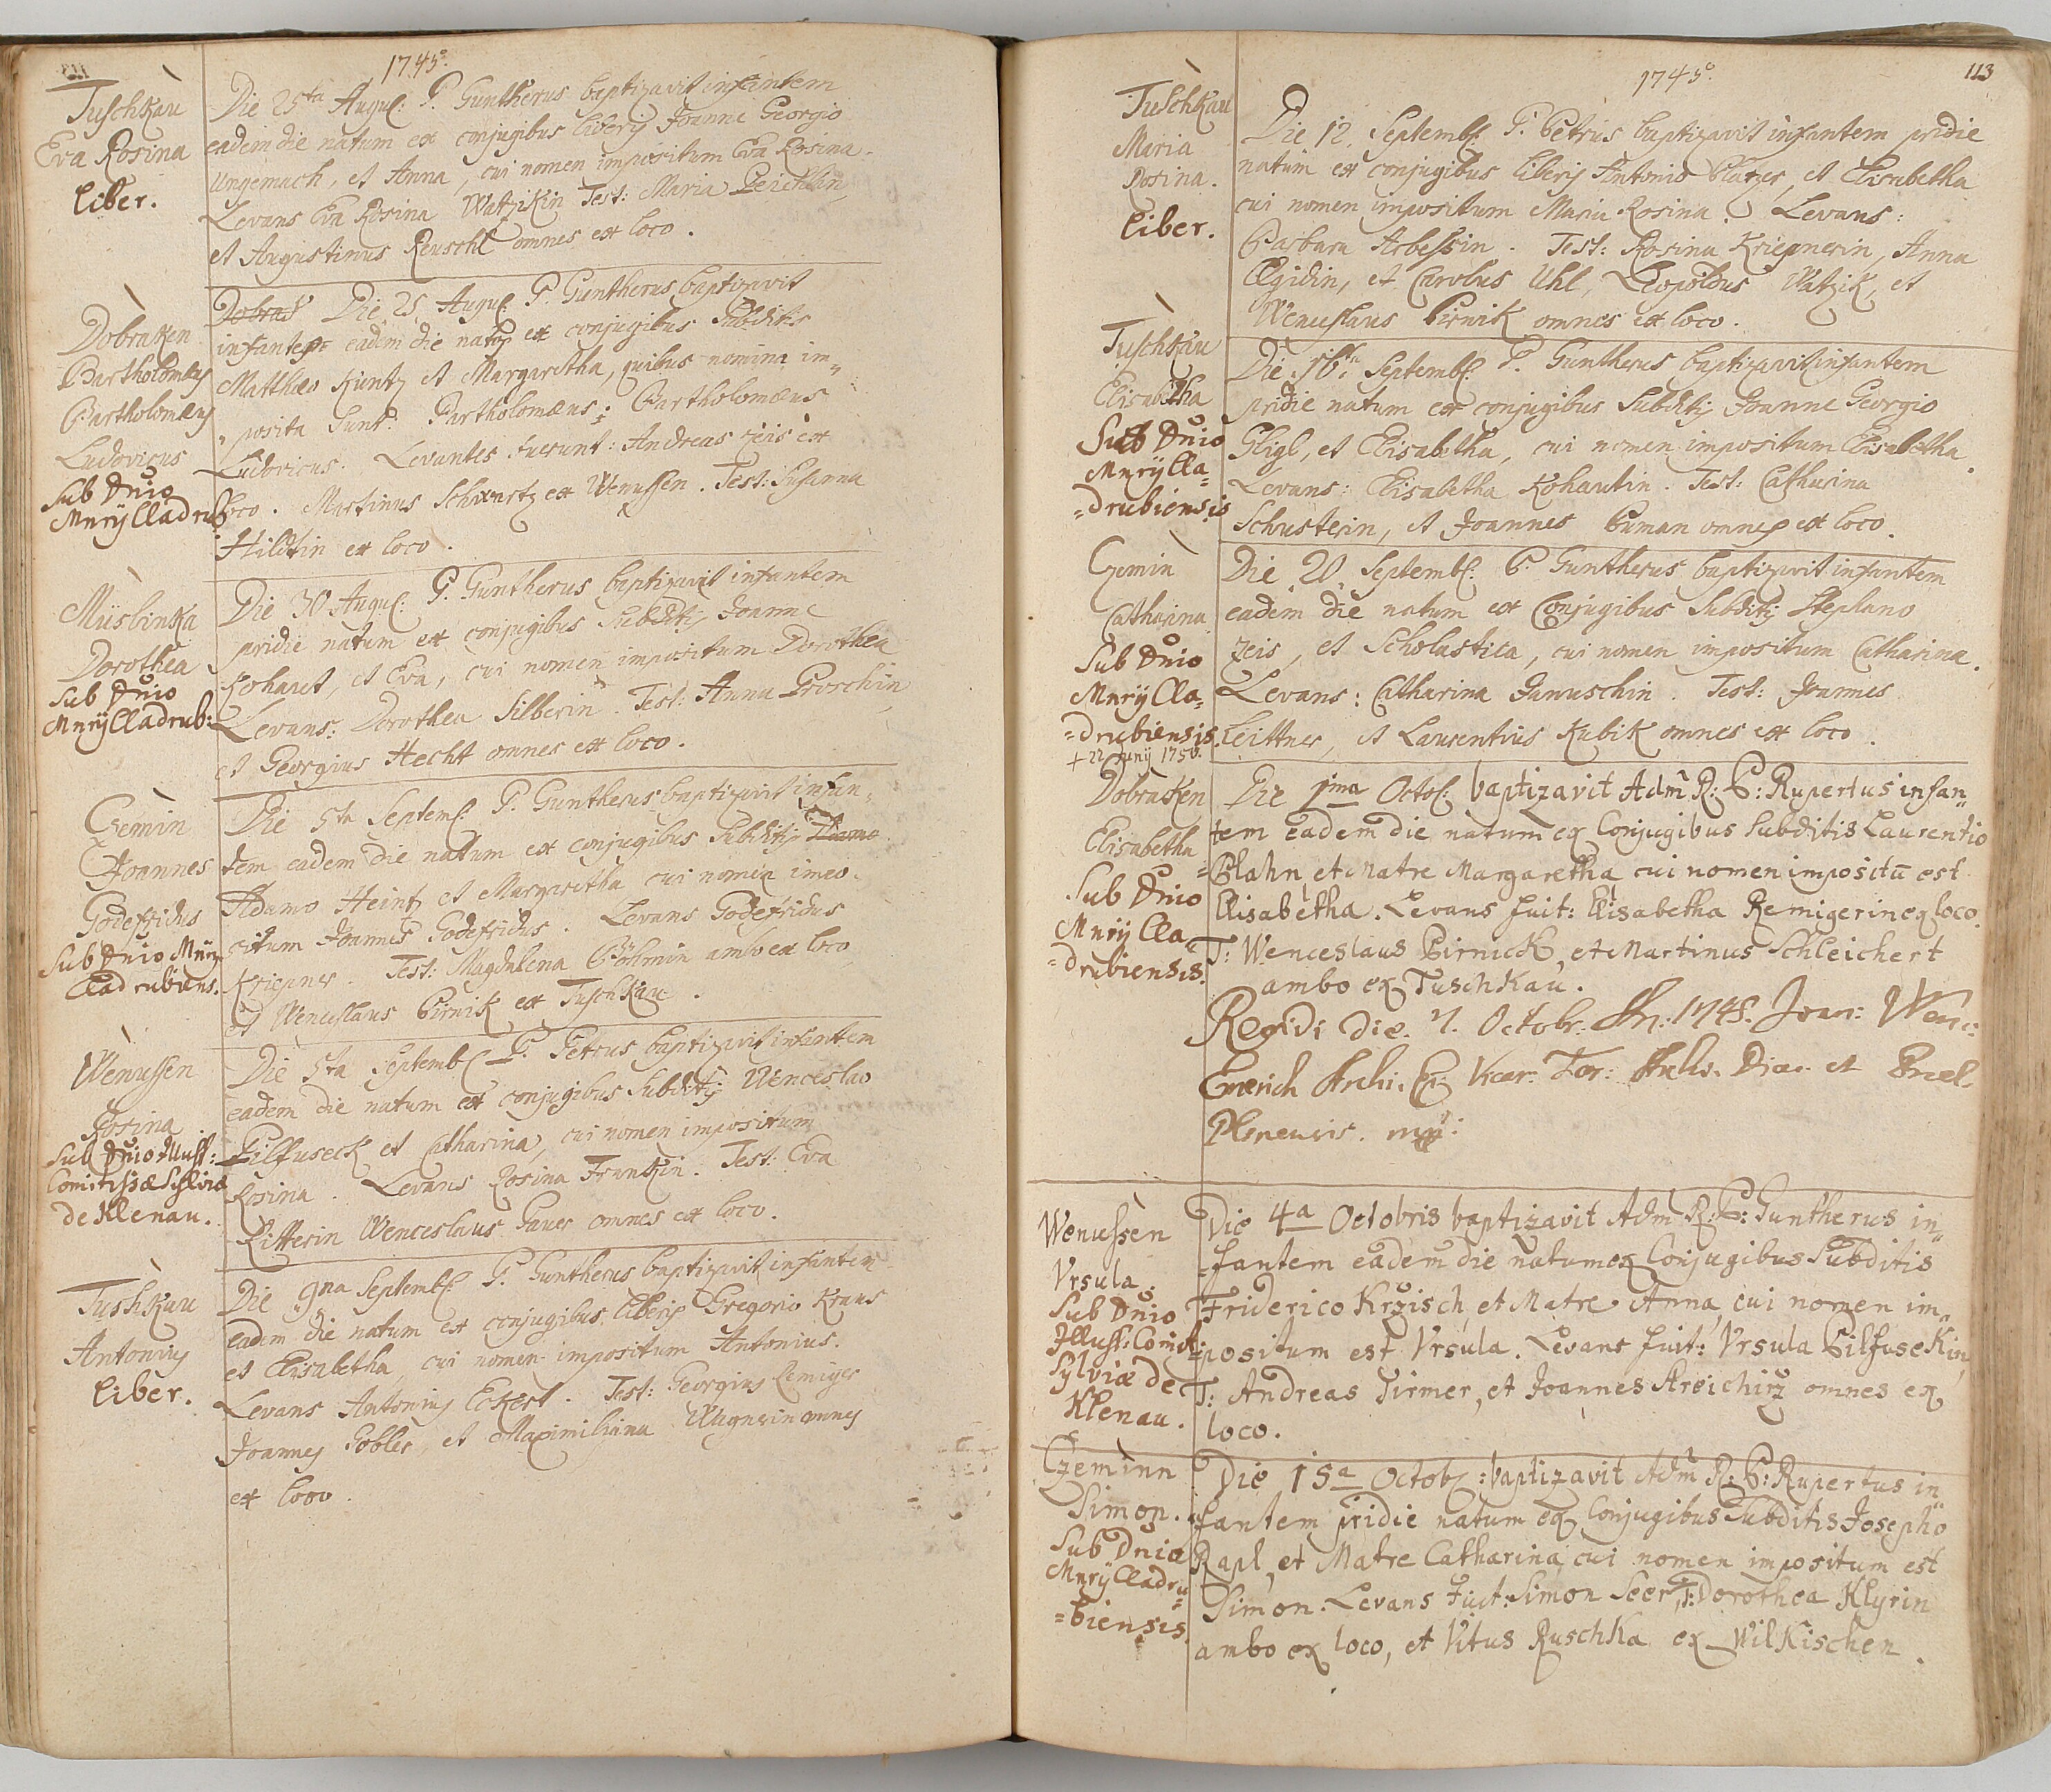 1745°.
Tuschkau
Eva Rosina
liber.
Die 25ta Augus: P. Guntherus baptizavit infantem
eadem die natum ex conjugibus liberis Joanne Georgio
Ungemach, et Anna, cui nomen impositum Eva Rosina.
Levans Eva Rosina Watzikin Test: Maria Peichlin,
et Augustinus Reuschl omnes ex loco.
Dobraken
Bartholomæus
Bartholomæus
Ludovicus
Sub Dnio
Mnrÿ Cladrub:
Dobrak Die 25 Augus: P. Guntherus baptizavit
infantes eadem die natos ex conjugibus subditis
Matthæo Kuntz et Margaretha, quibus nomina im=
posita sunt: Bartholomæus; Bartholomæus
Ludovicus. Levantes fuerunt: Andreas Zeis ex
loco. Martinus Schwartz ex Wenussen. Test: Susanna
Hildtin ex loco.
Müslinka
Dorothea
Sub Dnio
Mnrÿ Cladrub:
Die 30 Augus: P. Guntherus baptizavit infantem
pridie natum ex conjugibus subditis Joanne
Kohaut, et Eva, cui nomen impositum Dorothea
Levans: Dorothea Silberin. Test: Anna Proschin,
et Georgius Hecht omnes ex loco.
Czemin
Joannes
Godefridus
Sub Dnio Mnrÿ
Cladrubiens.
Die 5ta Septem: P. Guntherus baptizavit infan=
tem eadem die natum ex conjugibus subditis
Adamo Heintz et Margaretha cui nomen impo=
situm Joannes Godefridus. Levans Godefridus
Kriegner. Test: Magdalena Böhmin ambo ex loco
et Wenceslaus Pirnik ex Tuschkau.
Wenussen
Rosina
Sub Dnio Illust:
Comitissæ Sylviæ
de Klenau.
Die 5ta Septemb: P. Petrus baptizavit infantem
eadem die natum ex conjugibus subditis Wenceslao
Pilfuseck et Catharina, cui nomen impositum
Rosina. Levans Rosina Frankin. Test: Eva
Ritterin Wenceslaus Pauer omnes ex loco.
Tushkau
Antonius
liber.
Die 9na Septemb: P. Guntherus baptizavit infantem
eadem die natum ex conjugibus liberis Gregorio Kraus
et Elisabetha, cui nomen impositum Antonius.
Levans Antonius Eckert. Test: Georgius Remiger
Joannes Gobler, et Maximiliana Wagnerin omnes
ex loco.
1745°.
113
Tuschkau
Maria
Rosina.
liber.
Die 12. Septemb: P. Petrus baptizavit infantem pridie
natum ex conjugibus liberis Antonio Platzer, et Elisabetha
cui nomen impositum Maria Rosina. Levans:
Barbara Arbessin. Test: Rosina Kriegnerin, Anna
Ægidin, et Carolus Uhl, Leopoldus Watzik, et
Wenceslaus Pirnik omnes ex loco.
Tuschkau
Elisabetha
Sub Dnio
Mnrÿ Cla=
=drubiensis
Die 16ta Septemb: P. Guntherus baptizavit infantem
pridie natum ex conjugibus subditis Joanne Georgio
Gligl, et Elisabetha, cui nomen impositum Elisabetha.
Levans: Elisabetha Kohautin. Test: Catharina
Schusterin, et Joannes Puman omnes ex loco.
Czemin
Catharina
Sub Dnio
Mnrÿ Cla=
=drubiensis.
+ 22 Junij 1750.
Die 20. Septemb: P. Guntherus baptizavit infantem
eadem die natum ex Conjugibus Subditis Stephano
Zeis, et Scholastica, cui nomen impositum Catharina.
Levans: Catharina Januschin. Test: Joannes
Leittner, et Laurentius Kubik omnes ex loco.
Dobraken
Elisabetha
Sub Dnio
Mnrÿ Cla=
=drubiensis.
Die 1ma Octob: baptizavit Adm R: P: Rupertus infan=
tem eadem die natum ex Conjugibus Subditis Laurentio
Blahn, et Matre Margaretha, cui nomen impositū est
Elisabetha. Levans fuit: Elisabetha Remigerin ex loco.
T: Wenceslaus Pirnick, et Martinus Schleichert
ambo ex Tuschkau.
Revidi die 7. Octobr. An: 1745. Joan: Wenc:
Emerich Archi. Ep. Vicar. For: Archi. Dia. et
Plsnensis. mp:
Wenussen
Vrsula.
Sub Dnio
Illust: Comit:
Sylviæ de
Klenau.
Die 4a Octobris baptizavit Adm R: P: Guntherus in=
=fantem eadem die natum ex Conjugibus Subditis
Friderico Krzisch, et Matre Anna, cui nomen im=
=positum est Vrsula. Levans fuit: Vrsula Pilfusekin,
T: Andreas Tirmer, et Joannes Streichirz omnes ex
loco.
Czeminn
Simon.
Sub Dnio
Mnrÿ Cladru=
=biensis.
Die 15a Octob: baptizavit Adm R: P: Rupertus in=
fantem pridie natum ex Conjugibus Subditis Josepho
Rapl, et Matre Catharina, cui nomen impositum est
Simon. Levans fuit: Simon Seer, T: Dorothea Klyrin
ambo ex loco, et Vitus Ruschka ex Wilkischen.